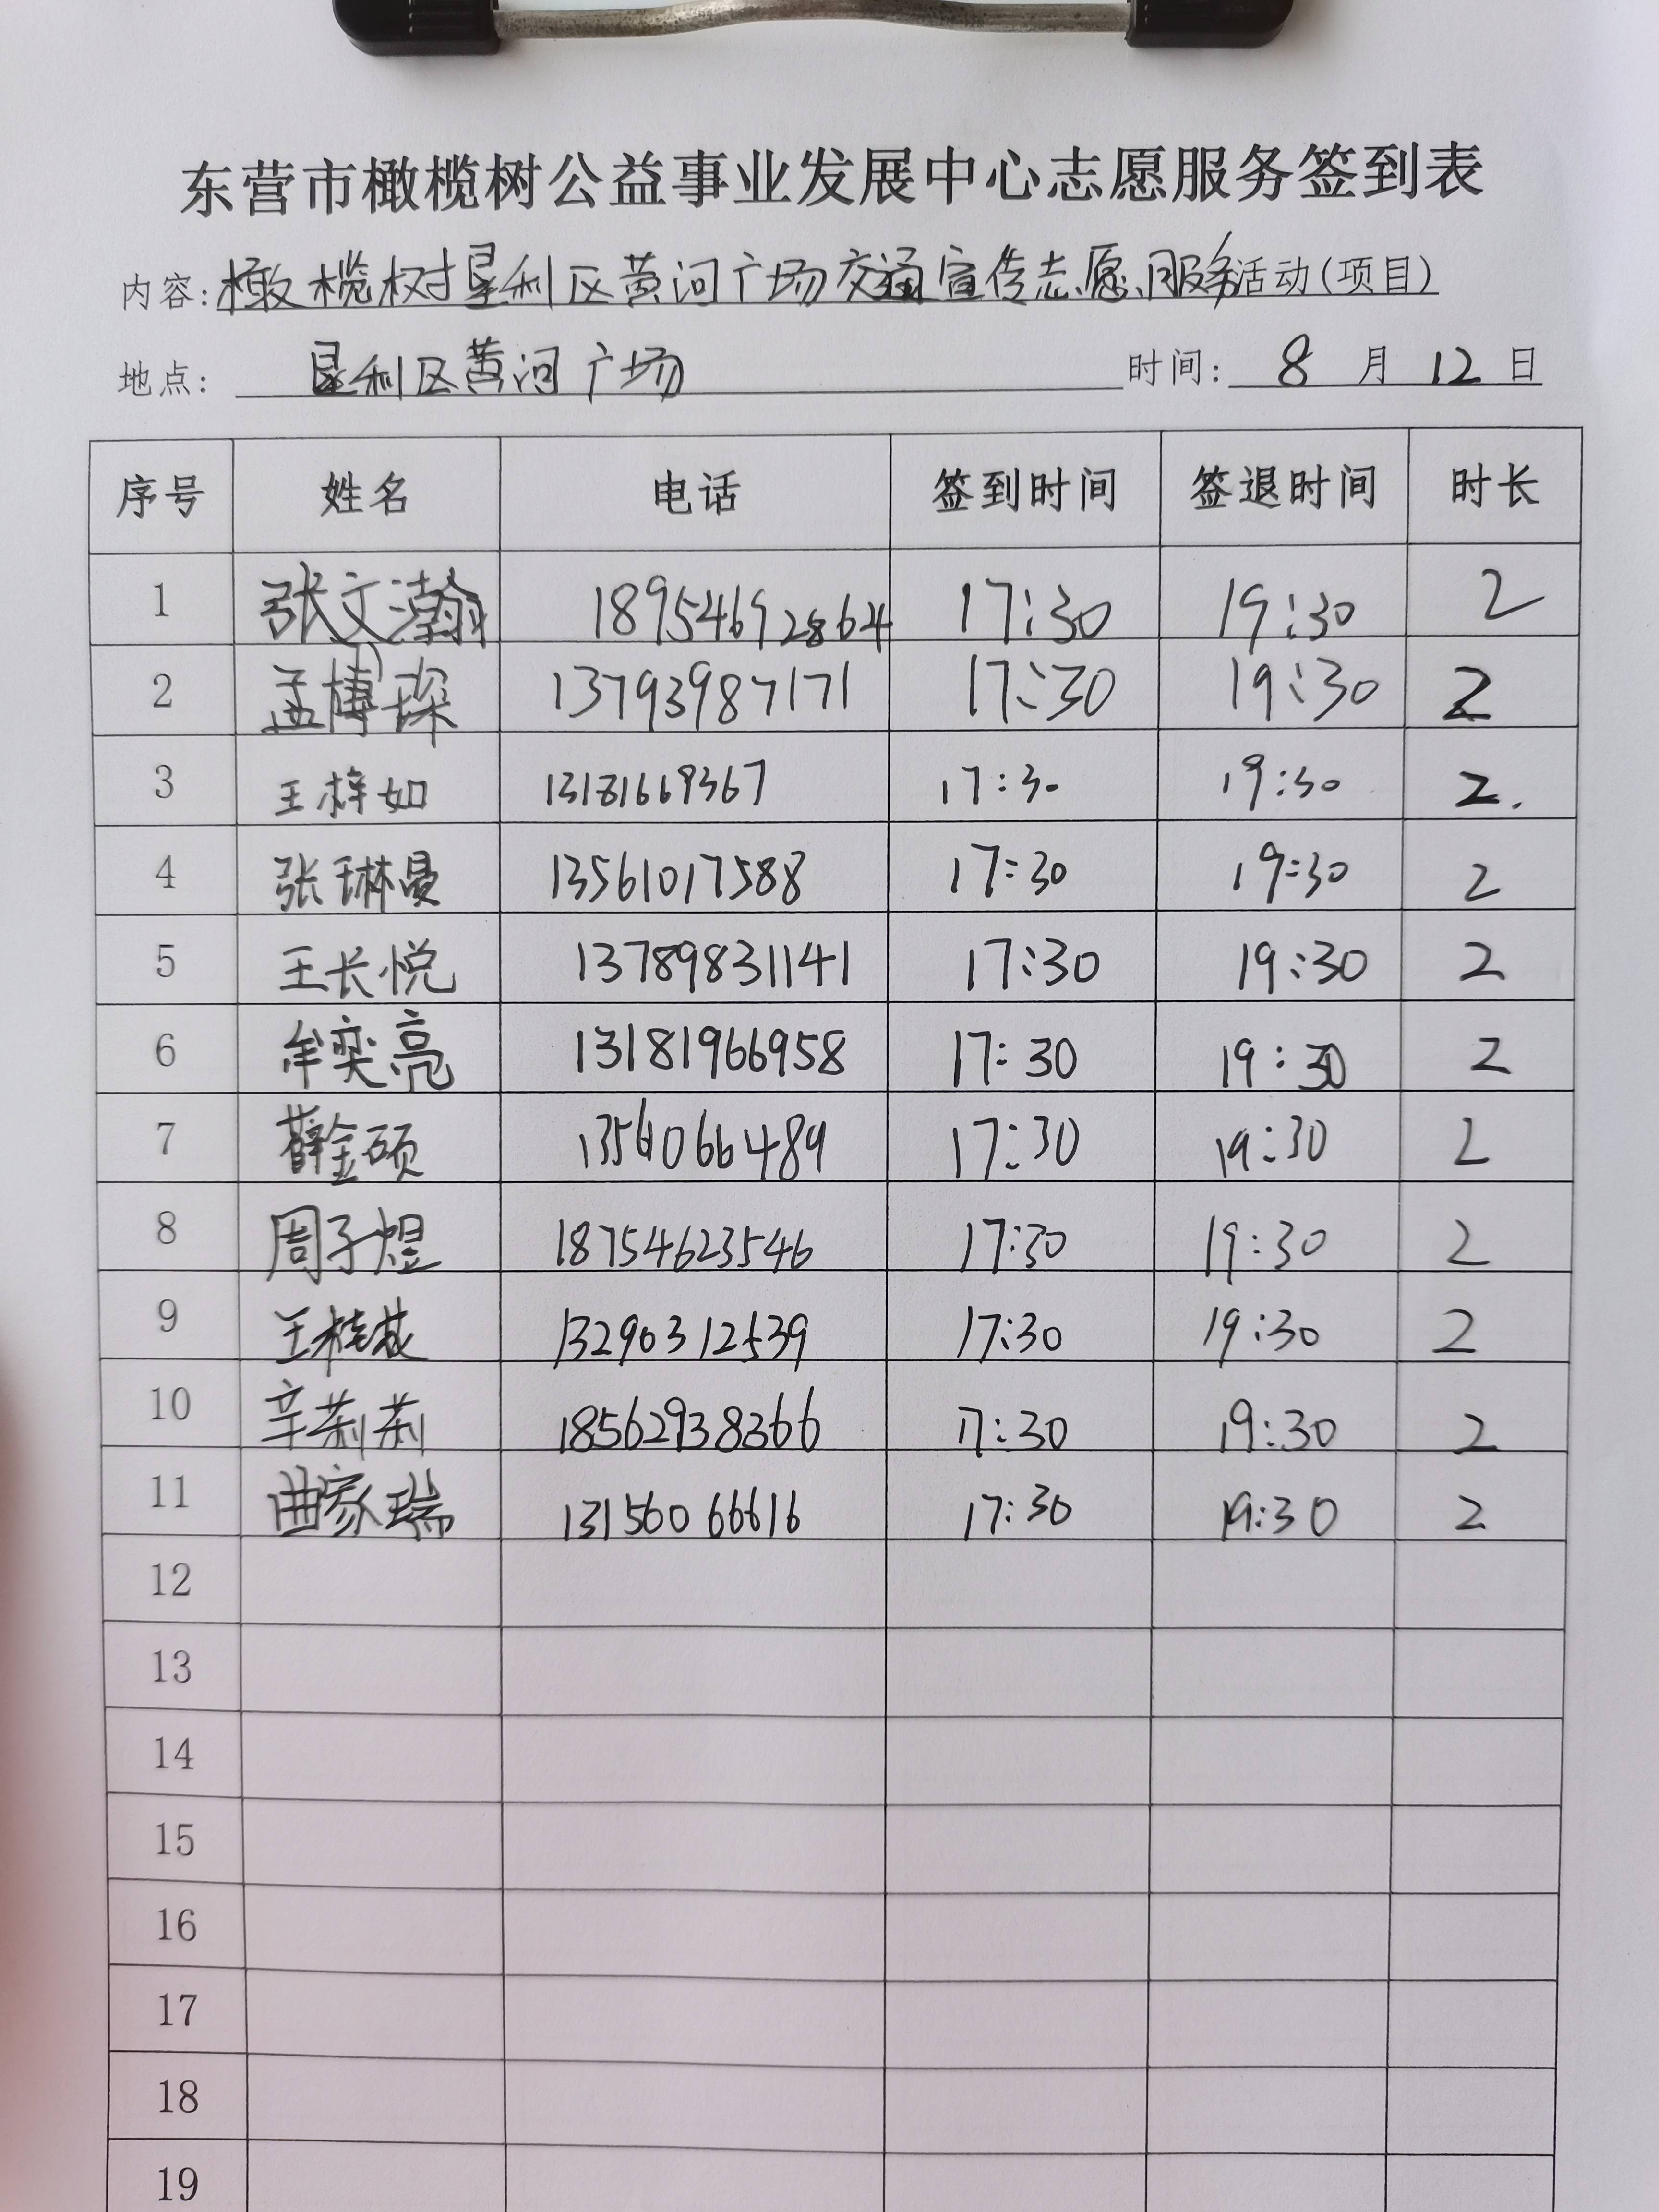 东营市橄榄树公益事业发展中心志愿服务签到表
内容:橄榄树垦利区黄河广场交通宣传志愿服务活动(项目)
地点: 垦利区黄河广场 时间: 8 月 12 日
序号 姓名 电话 签到时间 签退时间 时长
1 张文瀚 18954692864 17:30 19:30 2
2 孟博琛 13793987171 17:30 19:30 2
3 王梓如 13181669367 17:30 19:30 2.
4 张琳曼 13561017588 17:30 19:30 2
5 王长悦 13789831141 17:30 19:30 2
6 牟奕亮 13181966958 17:30 19:30 2
7 薛金硕 17:30 19:30 2
8 周子煜 18754623546 17:30 19:30 2
9 13290312539 17:30 19:30 2
10 辛莉莉 18562938366 17:30 19:30 2
11 曲家瑞 13156066616 17:30 19:30 2
12
13
14
15
16
17
18
19